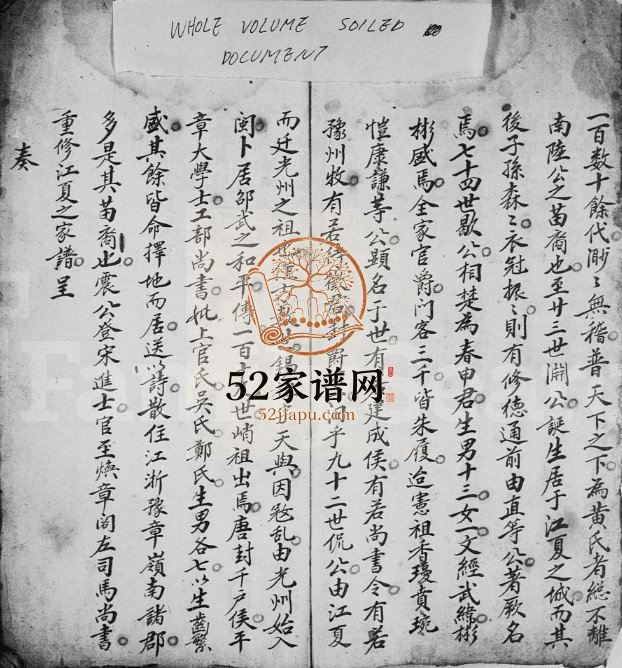 WHOLE VOLUME SOILED
DOCUMENT
一百数十餘代渺〻無稽普天下之下為黄氏者總不離
南陸公之苗裔也至廿三世淵公誕生居于江夏之城而其
後子孫森〻衣冠振〻則有修德通前由直等公著厥名
焉七十四世歇公相楚為春申君生男十三女一文經武緯彬
彬盛焉全家官爵门客三千皆朱履迨憲祖香瓊賁琬
愷康謙等公顕名于世有 達成侯有若尚書令有若
豫州牧有若 封爵 乎九十二世侃公由江夏
而迁光州之祖 方 錫 天與因兵乱由光州始入
闽卜居邵武之和平傳一百十 世峭祖出焉唐封千户侯平
章大學士工部尚書妣上官氏吳氏鄭氏生男各七以生齒繁
盛其餘皆命擇地而居送以詩散住江浙豫章嶺南諸郡
多是其苗裔也震公登宋進士官至煥章阁左司馬尚書
重修江夏之家譜呈
奏
52家谱网
52jiapu.com